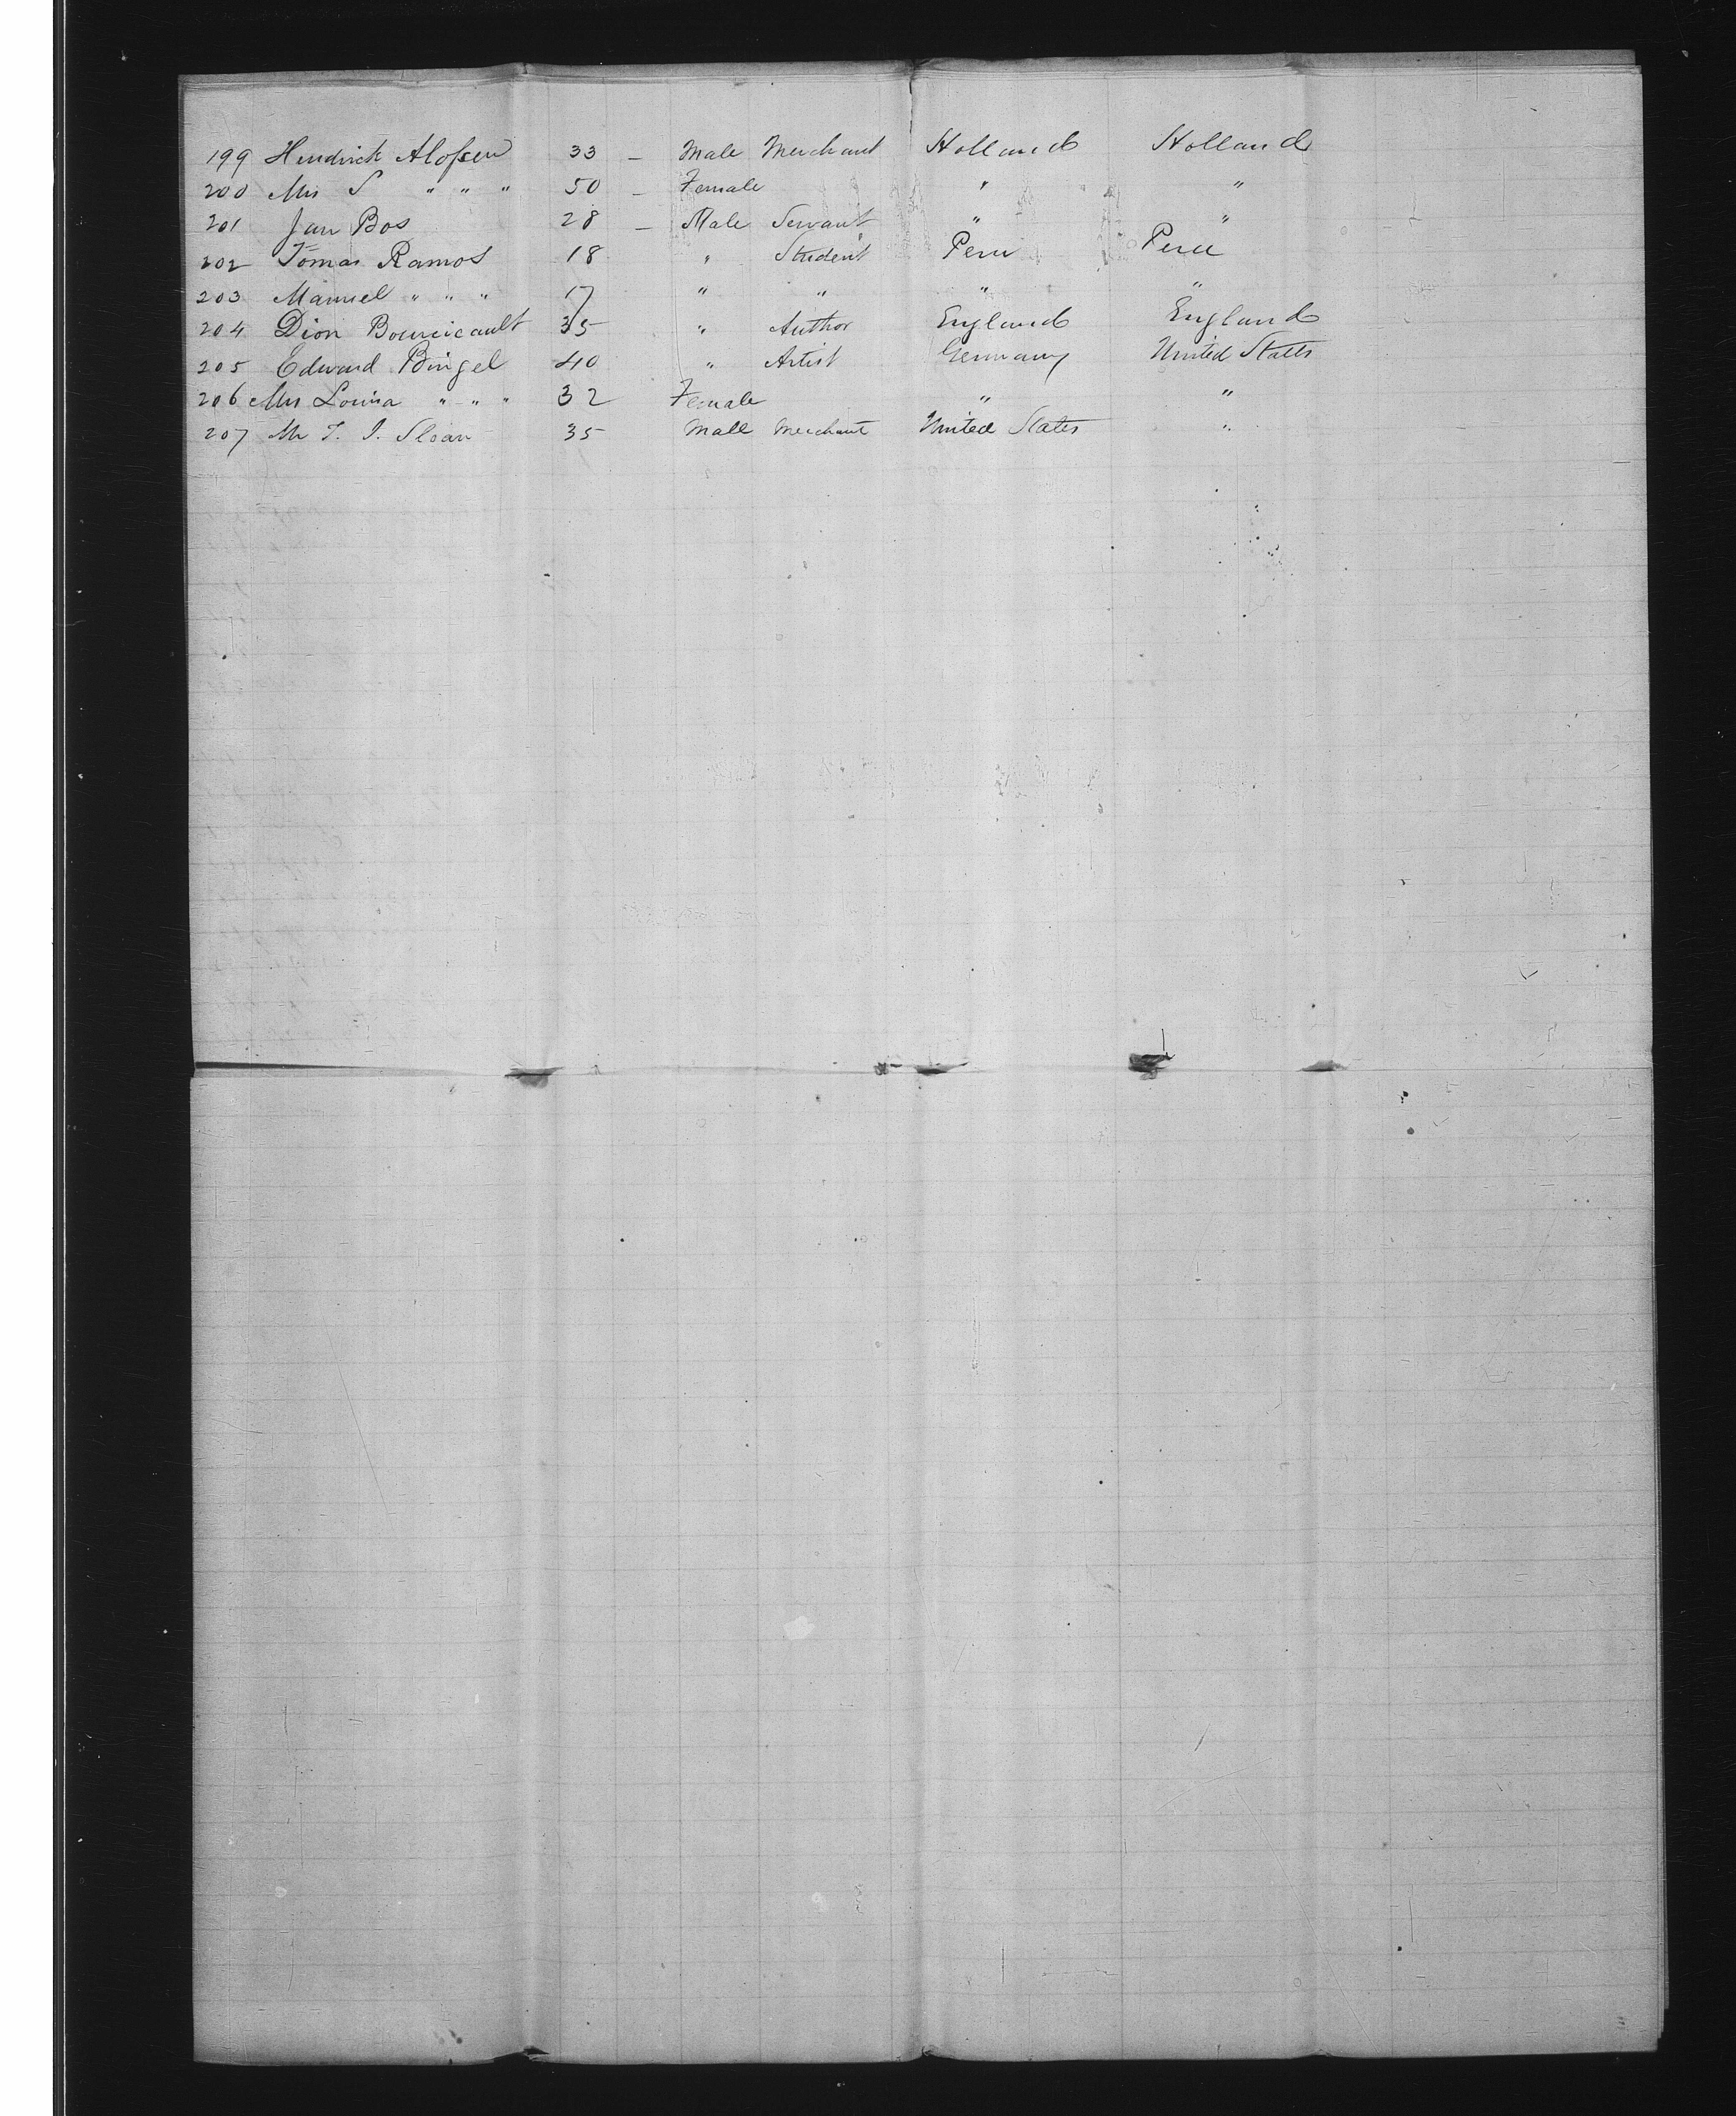 199 Hendrick Alofsen 33 – Male Merchant Holland Holland
200 Mrs S " " " 50 – Female " "
201 Jan Bos 28 – Male Servant " "
202 Tomas Ramos 18 " Student Peru Peru
203 Manuel " " " 17 " " " "
204 Dion Bourcicault 35 " Author England England
205 Edward Bingel 40 " Artist Germany United States
206 Mrs Louisa " " " 32 Female " "
207 Mr T. J. Sloan 35 Male Merchant United States "